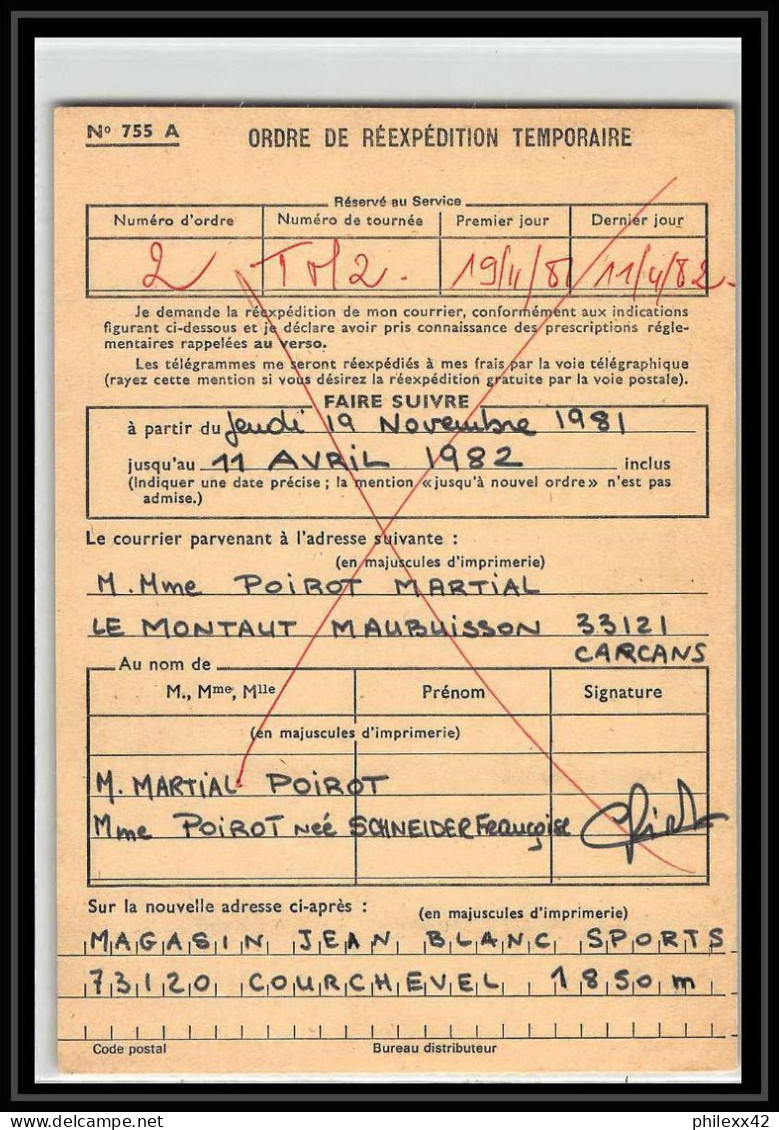 N° 755 A
ORDRE DE RÉEXPÉDITION TEMPORAIRE
Réservé au Service
Numéro d'ordre Numéro de tournée Premier jour Dernier jour
2 TM2. 19/11/81 11/4/82.
Je demande la réexpédition de mon courrier, conformément aux indications
figurant ci-dessous et je déclare avoir pris connaissance des prescriptions régle-
mentaires rappelées au verso.
Les télégrammes me seront réexpédiés à mes frais par la voie télégraphique
(rayez cette mention si vous désirez la réexpédition gratuite par la voie postale).
FAIRE SUIVRE
à partir du Jeudi 19 Novembre 1981
jusqu'au 11 AVRIL 1982 inclus
(Indiquer une date précise ; la mention «jusqu'à nouvel ordre» n'est pas
admise.)
Le courrier parvenant à l'adresse suivante :
(en majuscules d'imprimerie)
M. Mme POIROT MARTIAL
LE MONTAUT MAUBUISSON 33121
CARCANS
Au nom de
M., Mme, Mlle Prénom Signature
(en majuscules d'imprimerie)
M. MARTIAL POIROT
Mme POIROT neé SCHNEIDER Françoise
Sur la nouvelle adresse ci-après : (en majuscules d'imprimerie)
MAGASIN JEAN BLANC SPORTS
73120 COURCHEVEL 1850 m
Code postal Bureau distributeur
philexx42